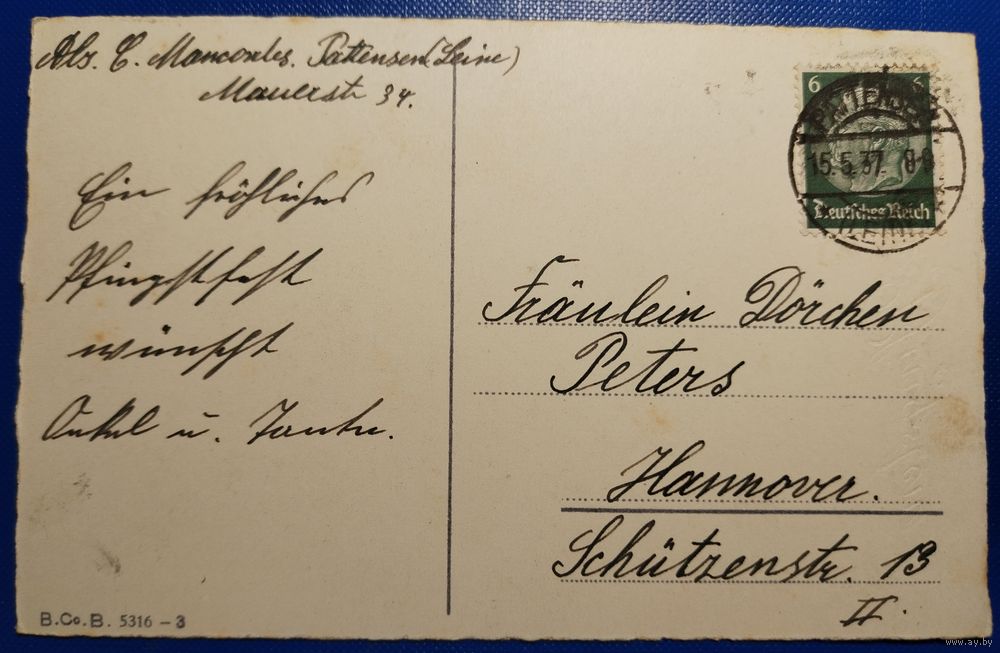 Abs. C. Pattensen (Leine)
Mauerstr 34.
Ein fröhliches
Pfingstfest
wünscht
Onkel u. Tante.
B.Co.B. 5316 – 3
6 6
PATTENSEN
15.5.37. 8-9
(LEINE)
Deutsches Reich
Fräulein Dörchen
Peters
Hannover.
Schützenstr. 13
II.
www.ay.by